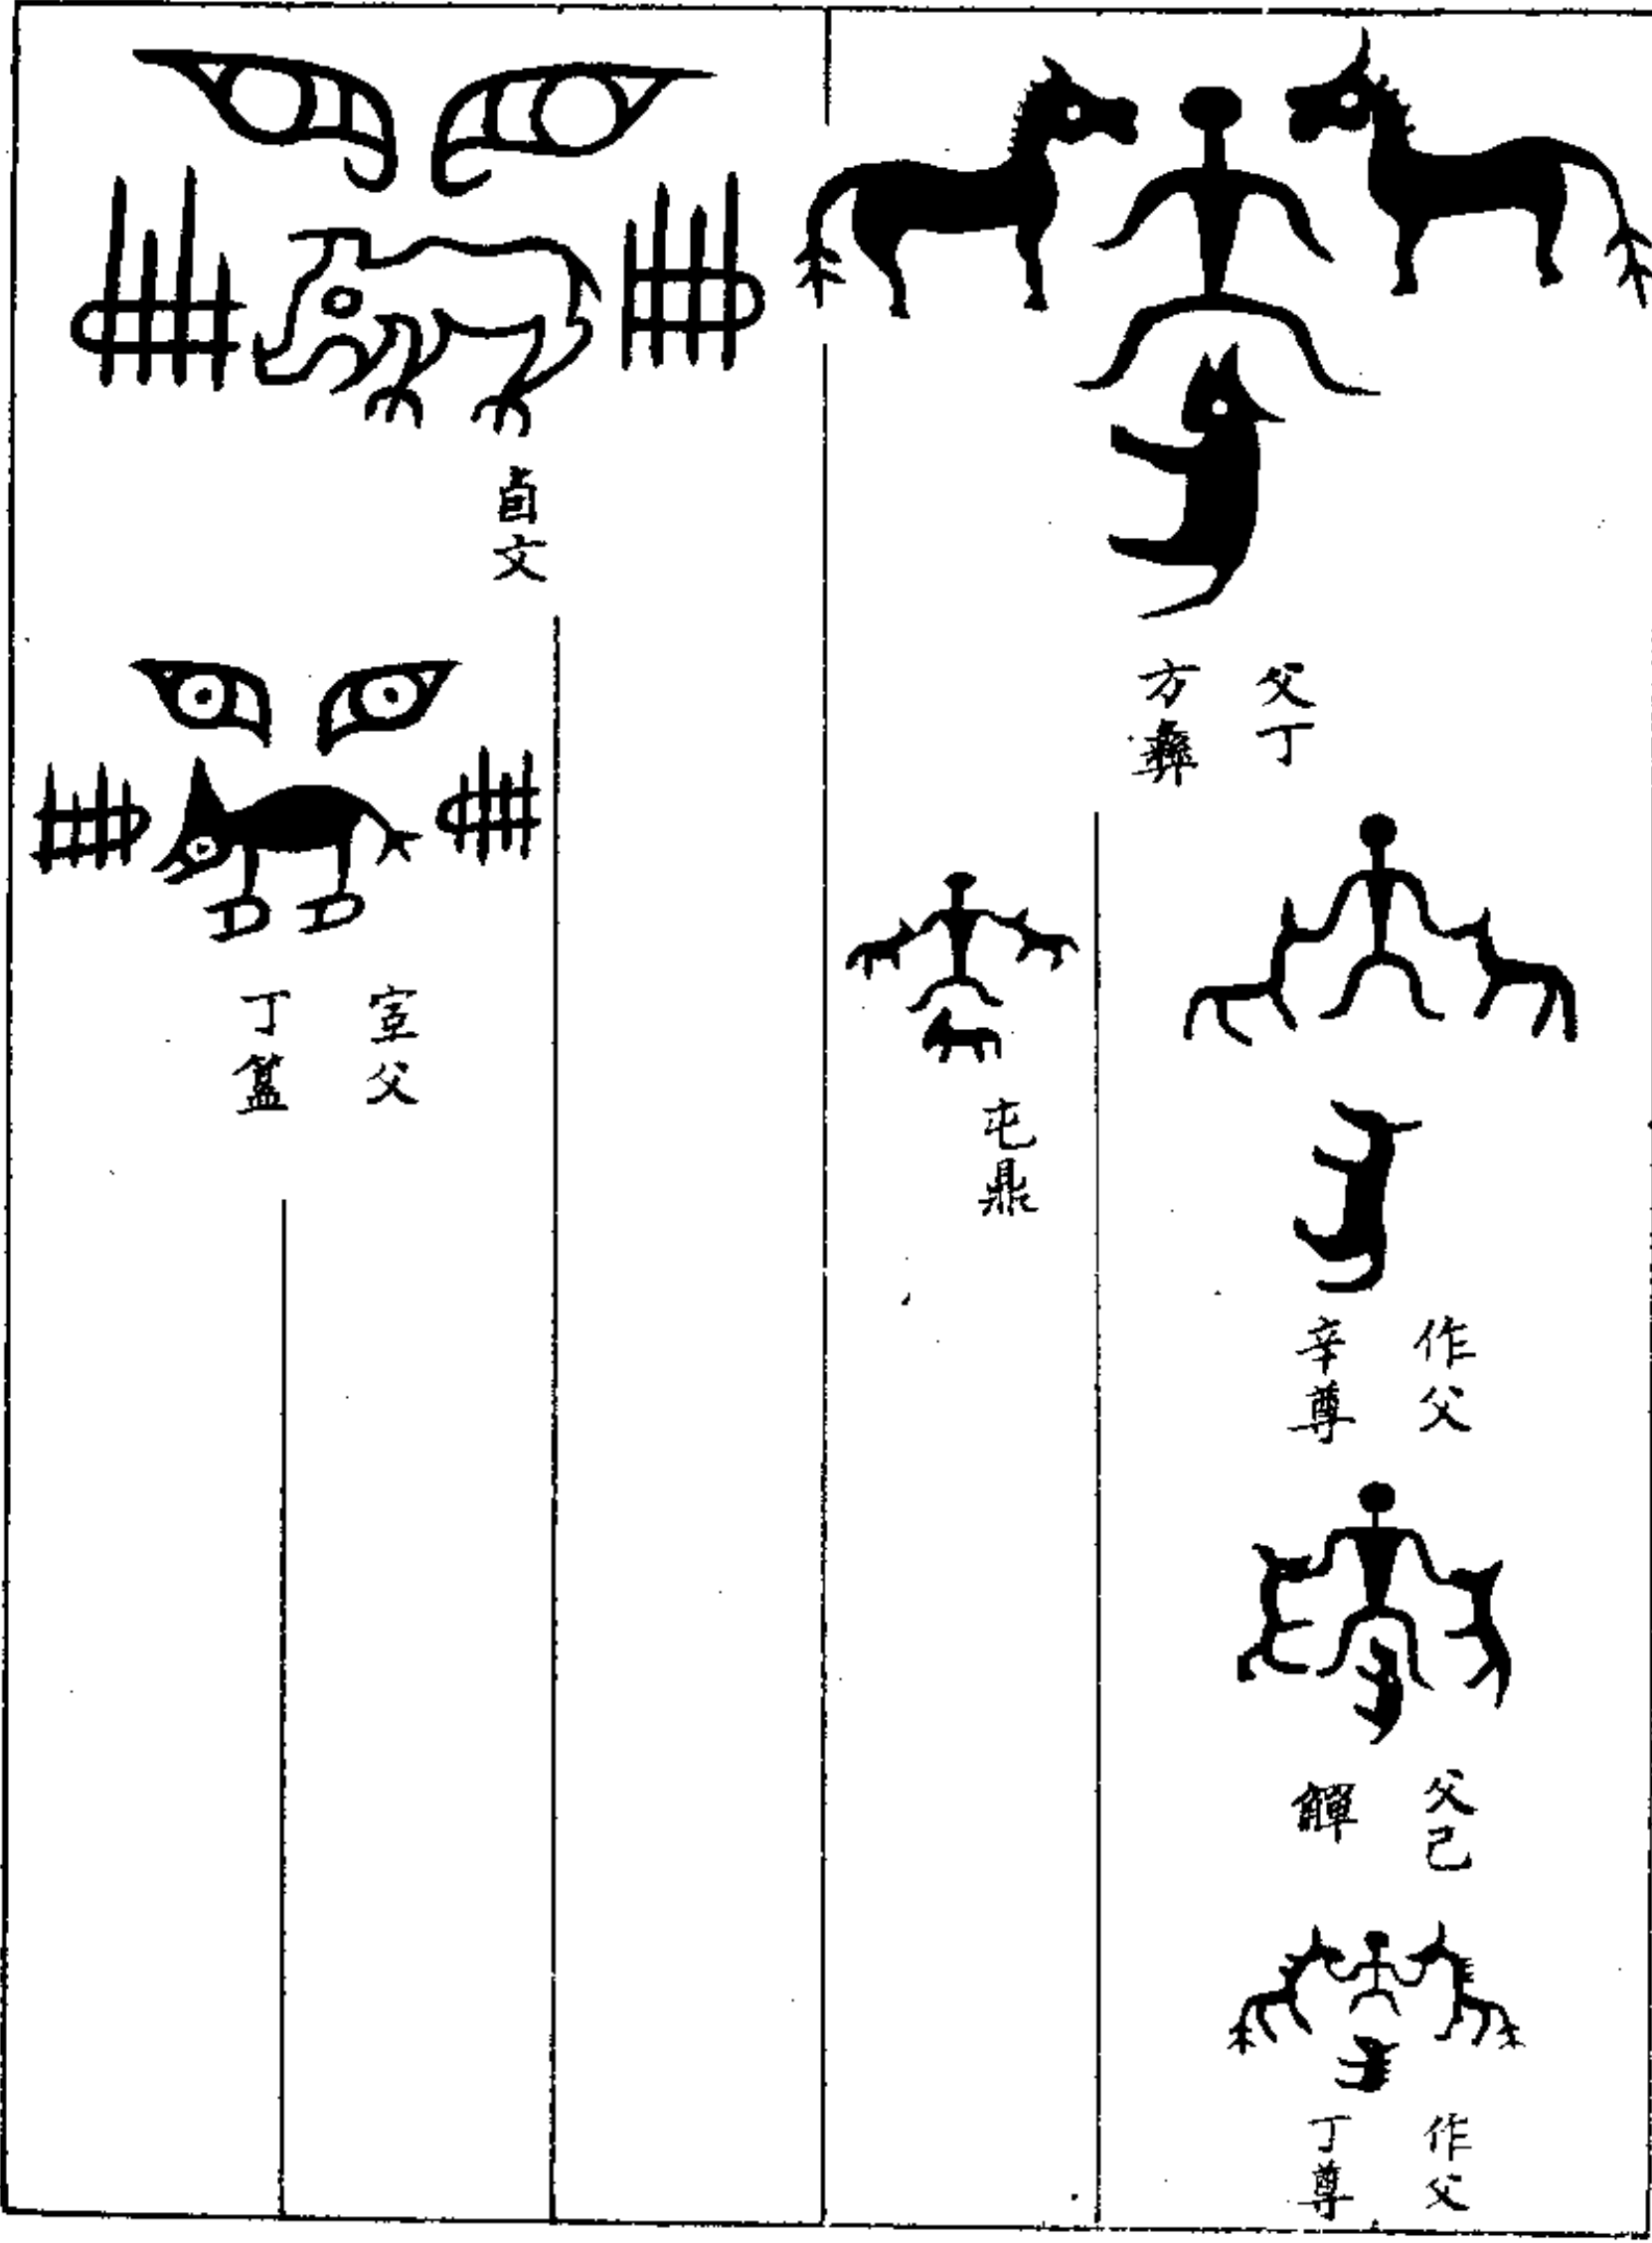 父丁
方彝
作父
辛尊
父己
觶
作父
丁尊
屯鼎
卣文
宣父
丁簋